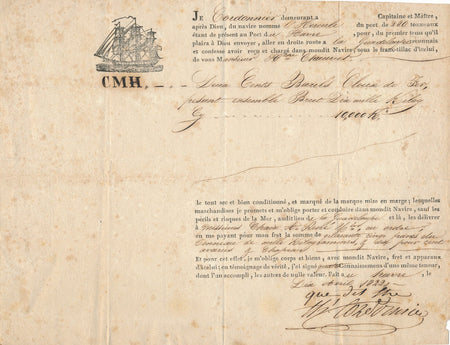 JE Cordonnier demeurant à Capitaine et Maître,
après Dieu, du navire nommé l'Hercule du port de 280 tonneaux
étant de présent au Port du Havre pour, du premier tems qu'il
plaira à Dieu envoyer, aller en droite route à la Guadeloupe
et confesse avoir reçu et chargé dans mondit Navire, sous le franc-tillac d'icelui,
de vous Monsieur Chaumont
CMH. Deux Cents Barils Clous de Fer,
pesant ensemble Brut Dix mille Kilog
Cy 10,000 k
le tout sec et bien conditionné, et marqué de la marque mise en marge; lesquelles
marchandises je promets et m'oblige porter et conduire dans mondit Navire, sauf les
périls et risques de la Mer, audit lieu de la Guadeloupe et là, les délivrer
à Messieurs ou ordre
en me payant pour mon fret la somme de cinq francs
Tonneau de mille Kilogrammes & dix pour cent
avaries &
Et pour cet effet, je m'oblige corps et biens, avec mondit Navire, fret et apparaux
d'icelui; en témoignage de vérité, j'ai signé Connaissemens d'une même teneur,
dont l'un accompli, les autres de nulle valeur. Fait au Havre, le
Dix Avril 1822
que dit être
Cordonnier